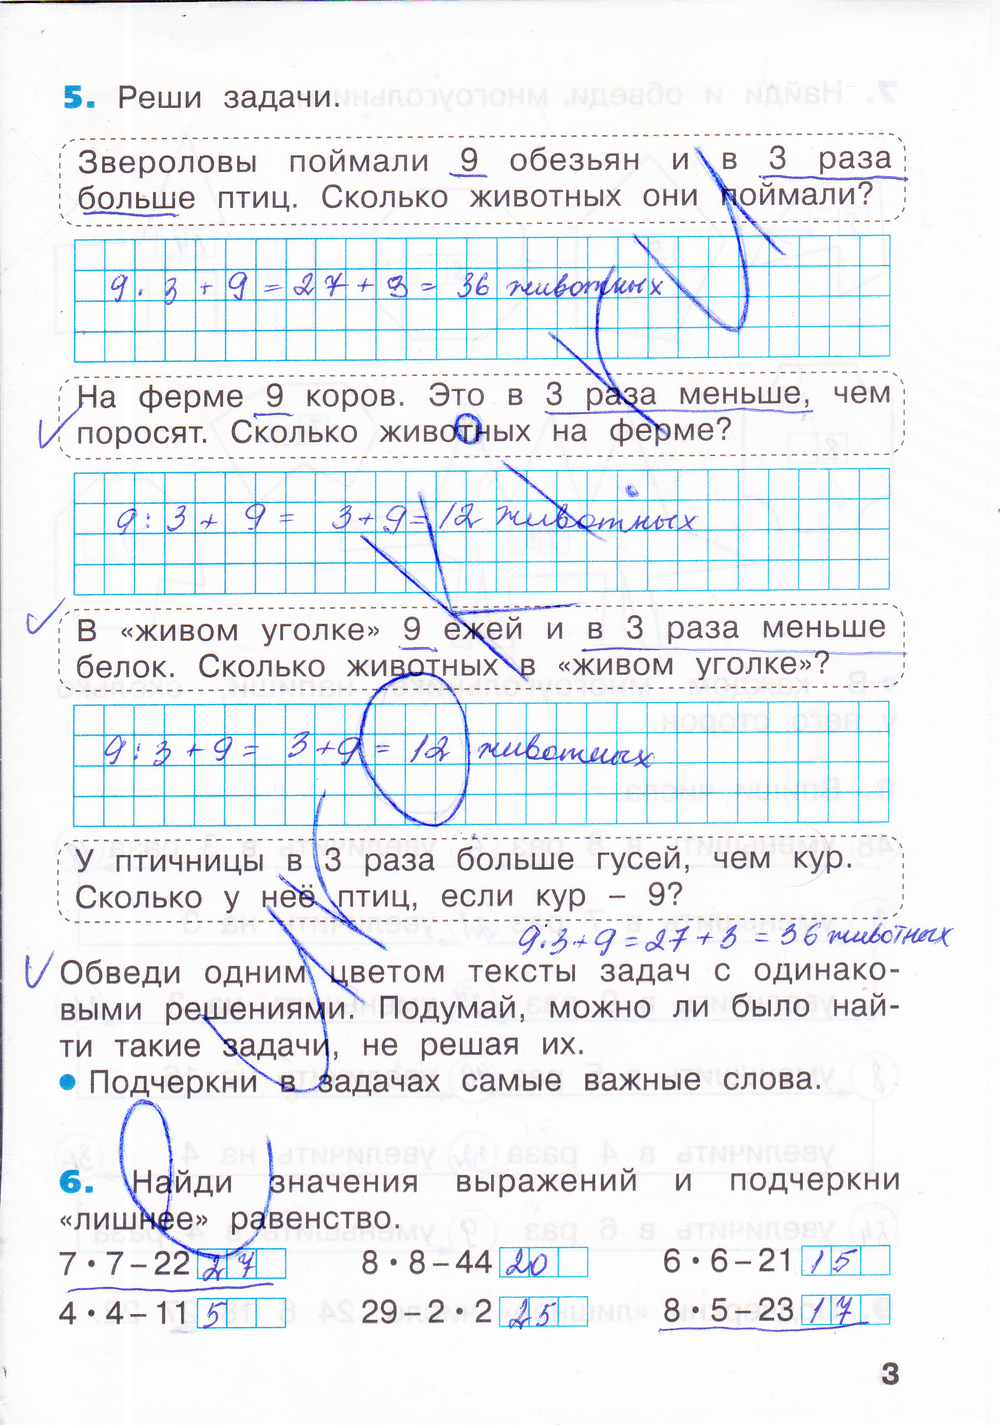 5. Реши задачи.
Звероловы поймали 9 обезьян и в 3 раза
больше птиц. Сколько животных они поймали?
9 · 3 + 9 = 27 + 9 = 36 животных
На ферме 9 коров. Это в 3 раза меньше, чем
поросят. Сколько животных на ферме?
9 : 3 + 9 = 3 + 9 = 12 животных
В «живом уголке» 9 ежей и в 3 раза меньше
белок. Сколько животных в «живом уголке»?
9 : 3 + 9 = 3 + 9 = 12 животных
У птичницы в 3 раза больше гусей, чем кур.
Сколько у неё птиц, если кур – 9?
9 · 3 + 9 = 27 + 3 = 36 животных
Обведи одним цветом тексты задач с одинако-
выми решениями. Подумай, можно ли было най-
ти такие задачи, не решая их.
• Подчеркни в задачах самые важные слова.
6. Найди значения выражений и подчеркни
«лишнее» равенство.
7 · 7 – 22 27 8 · 8 – 44 20 6 · 6 – 21 15
4 · 4 – 11 5 29 – 2 · 2 25 8 · 5 – 23 17
3